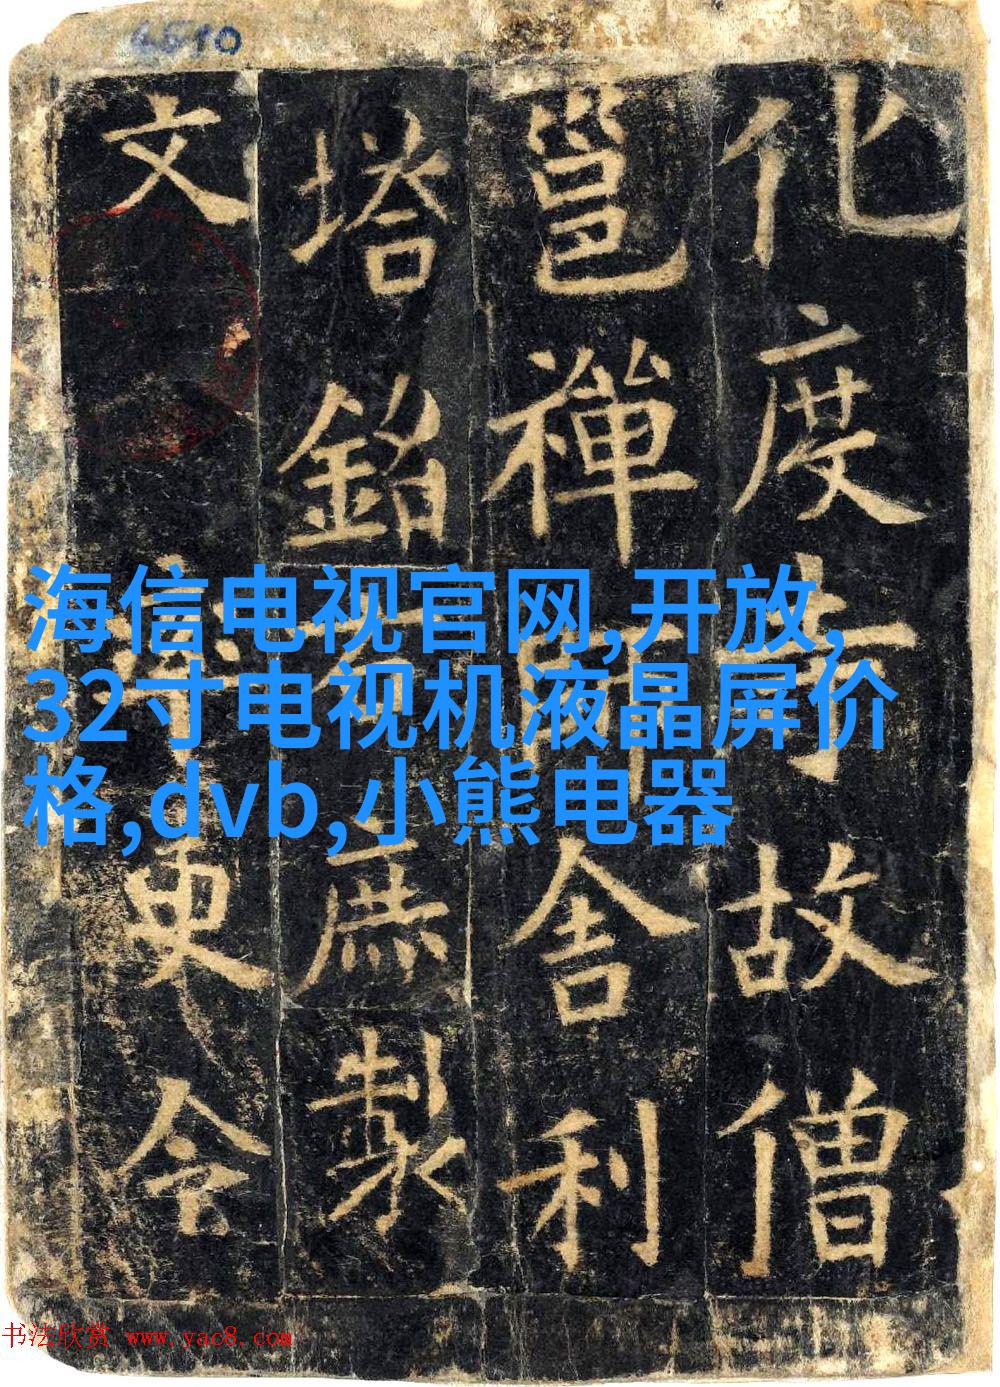 6510
化度寺故僧
邕禪師舍利
塔銘 右庶製
文 率更令
海信电视官网,开放,
32寸电视机液晶屏价
格,dvb,小熊电器
书法欣赏 www.yac8.com